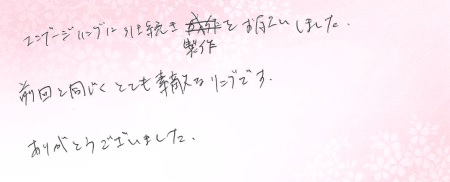 エンゲージリングに引き続き製作をお願いしました。
前回と同じくとても素敵なリングです。
ありがとうございました。